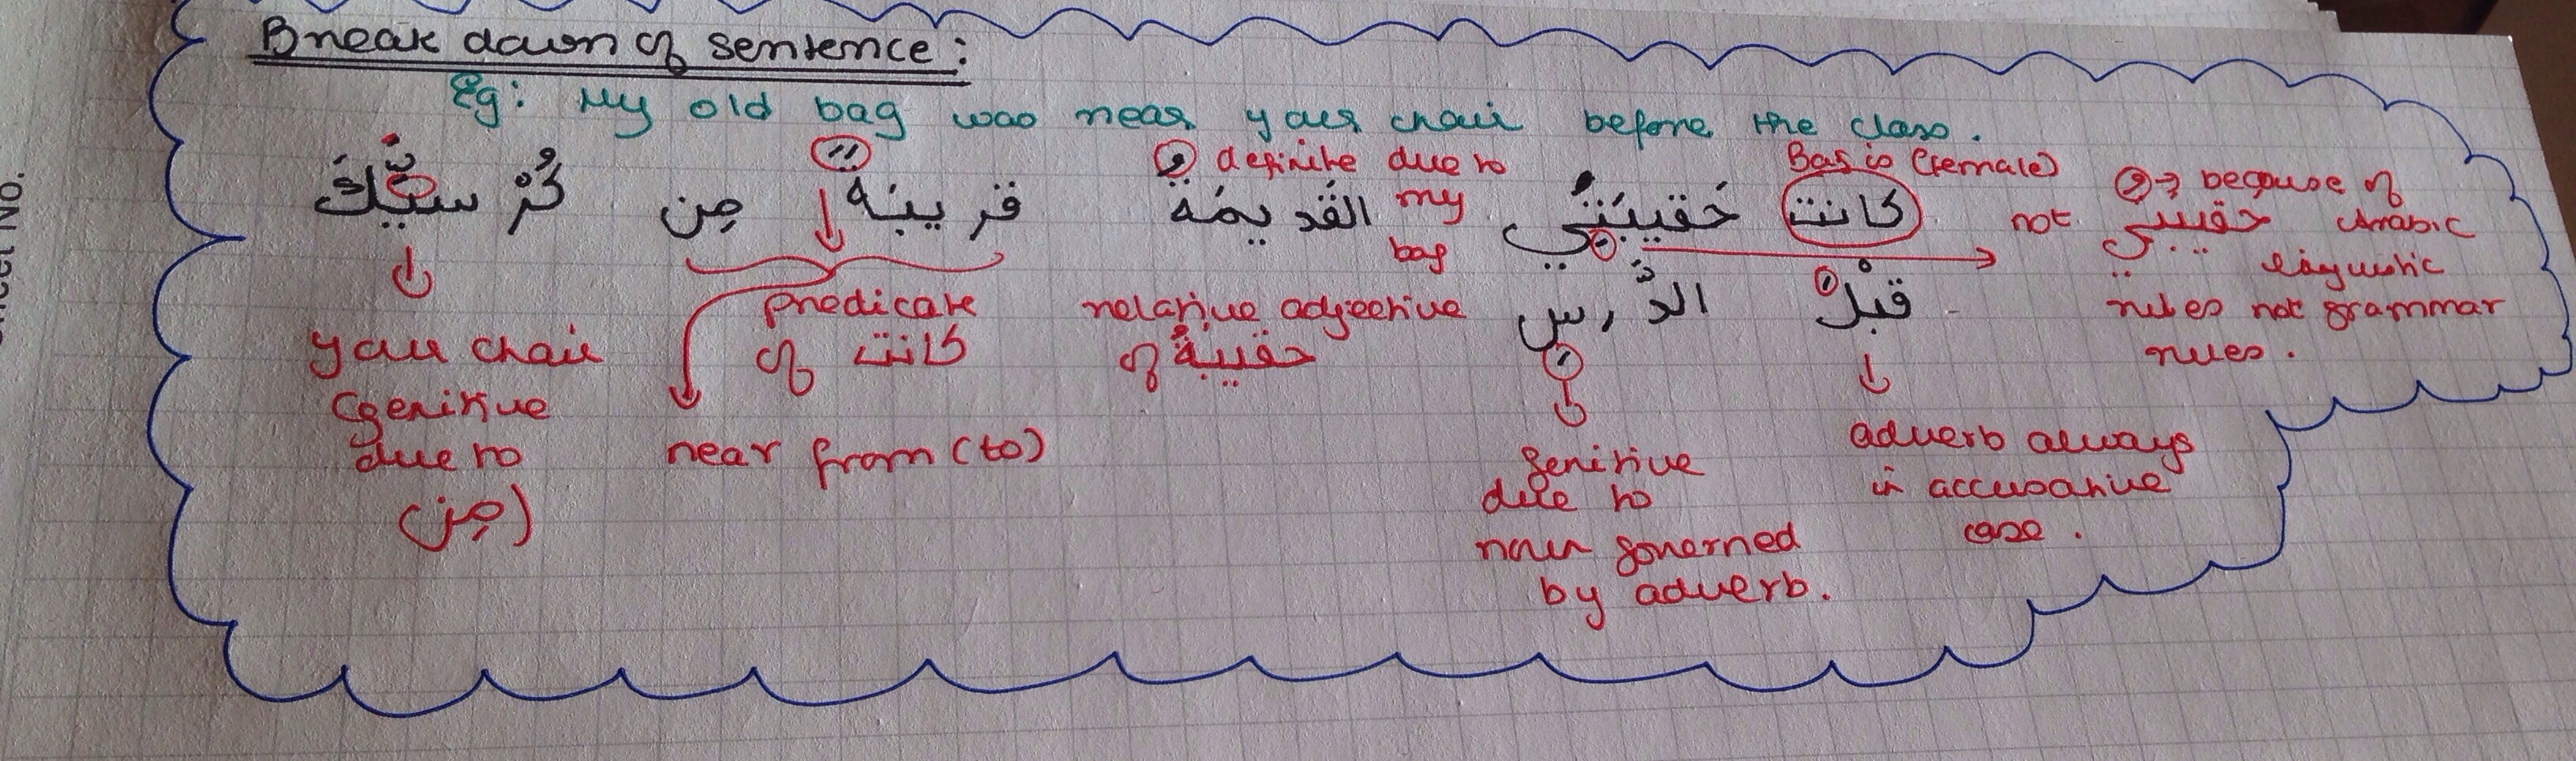 Break down of sentence:
Eg: My old bag was near your chair before the class.
كانت حَقيبَتُي القَديمَةُ قَريبَةً مِن كُرْسيِّكَ
قبْلَ الدَّرسِ
Bag is (female)
definite due to
my
bag
not حقيبتي
because of
Arabic
linguistic
rules not grammar
rules.
relative adjective
of حقيبةُ
predicate
of كانت
near from (to)
your chair
(genitive
due to
مِن)
adverb always
in accusative
case.
genitive
due to
noun governed
by adverb.